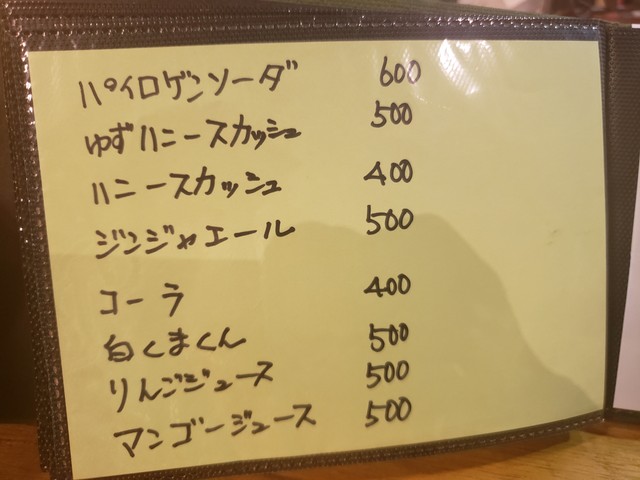 パイロゲンソーダ 600
ゆずハニースカッシュ 500
ハニースカッシュ 400
ジンジャエール 500
コーラ 400
白くまくん 500
りんごジュース 500
マンゴージュース 500